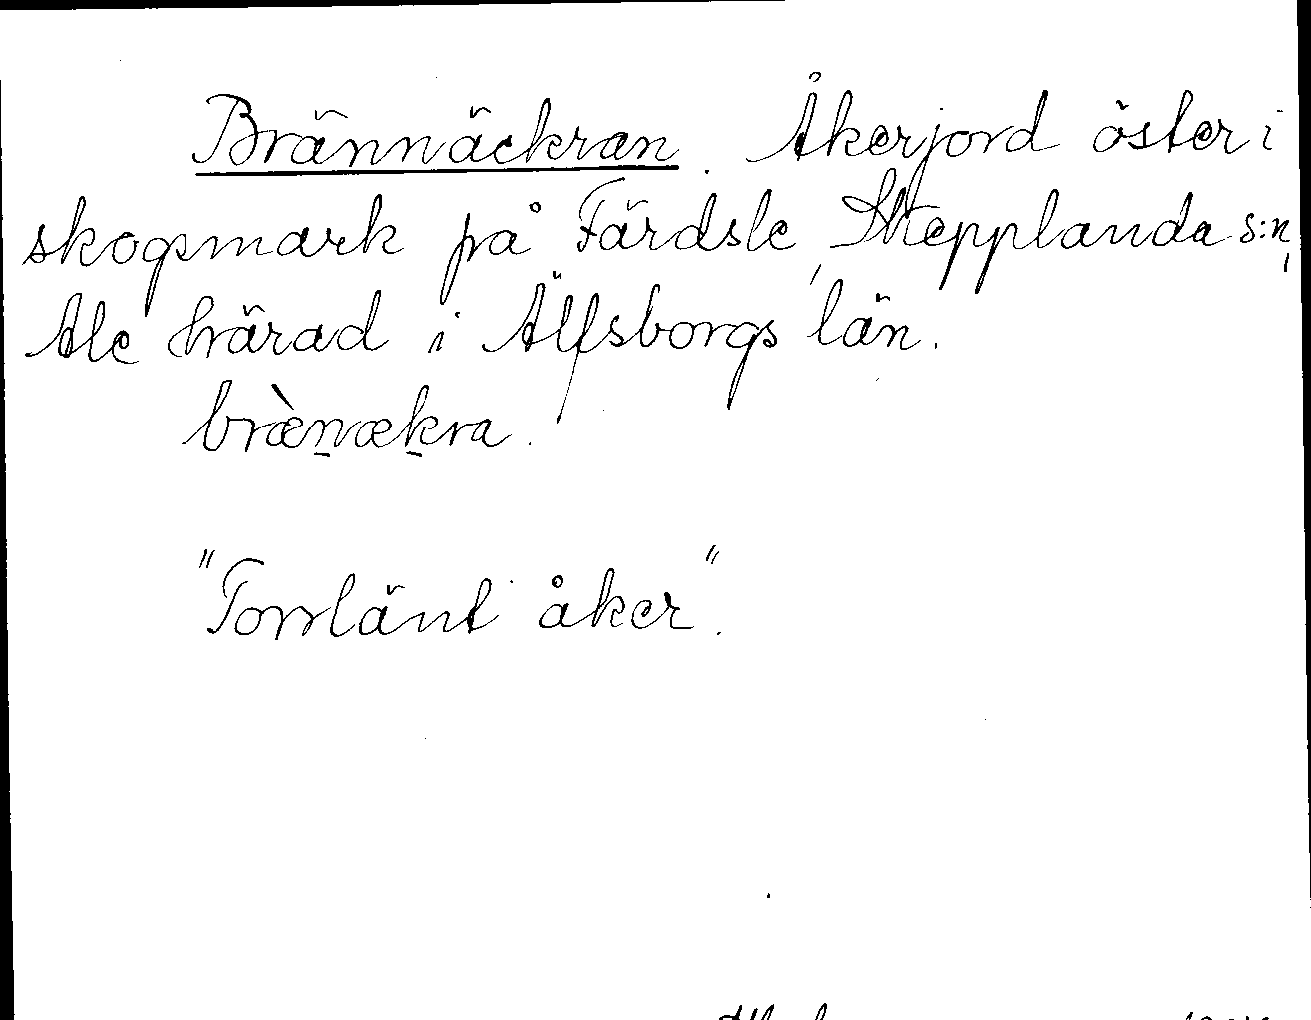 Brännäckran. Åkerjord öster i
skogsmark på Färdsle, Skepplanda s:n,
Ale härad i Älfsborgs län.
bræ̀n̠æk̠ra.
"Torrlänt åker".